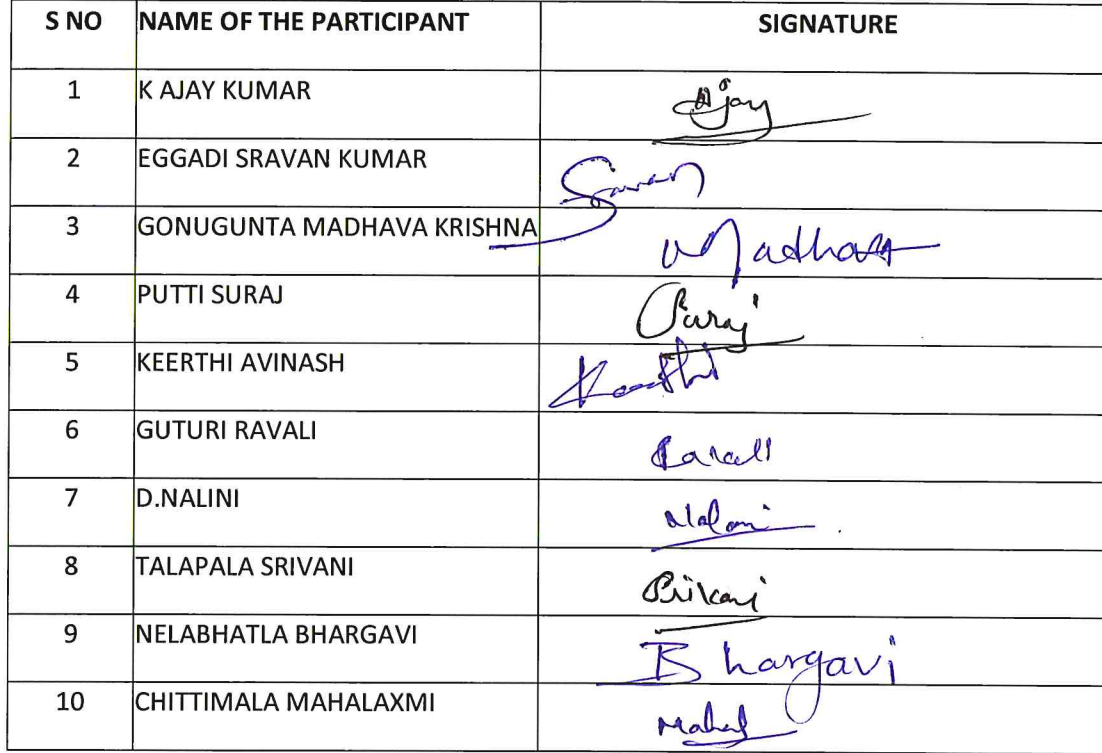 S NO NAME OF THE PARTICIPANT SIGNATURE
1 K AJAY KUMAR Ajay
2 EGGADI SRAVAN KUMAR Sravan
3 GONUGUNTA MADHAVA KRISHNA Madhava
4 PUTTI SURAJ Suraj
5 KEERTHI AVINASH Keerthi
6 GUTURI RAVALI Ravali
7 D.NALINI Nalini
8 TALAPALA SRIVANI Srivani
9 NELABHATLA BHARGAVI Bhargavi
10 CHITTIMALA MAHALAXMI Mahal